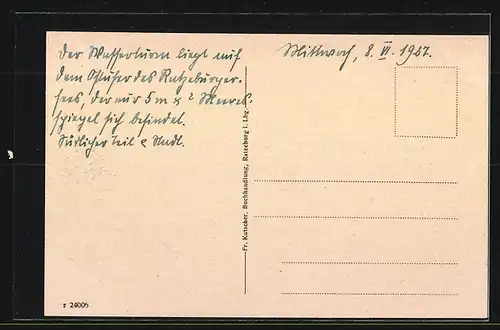 Der Wasserturm liegt auf
dem Ostufer des Ratzeburger-
sees, der nur 5 m Meeres-
spiegel sich befindet.
Südlicher Teil
Mittwoch, 8. VI. 1927.
Fr. Kutscher, Buchhandlung, Ratzeburg i. Lbg.
24006